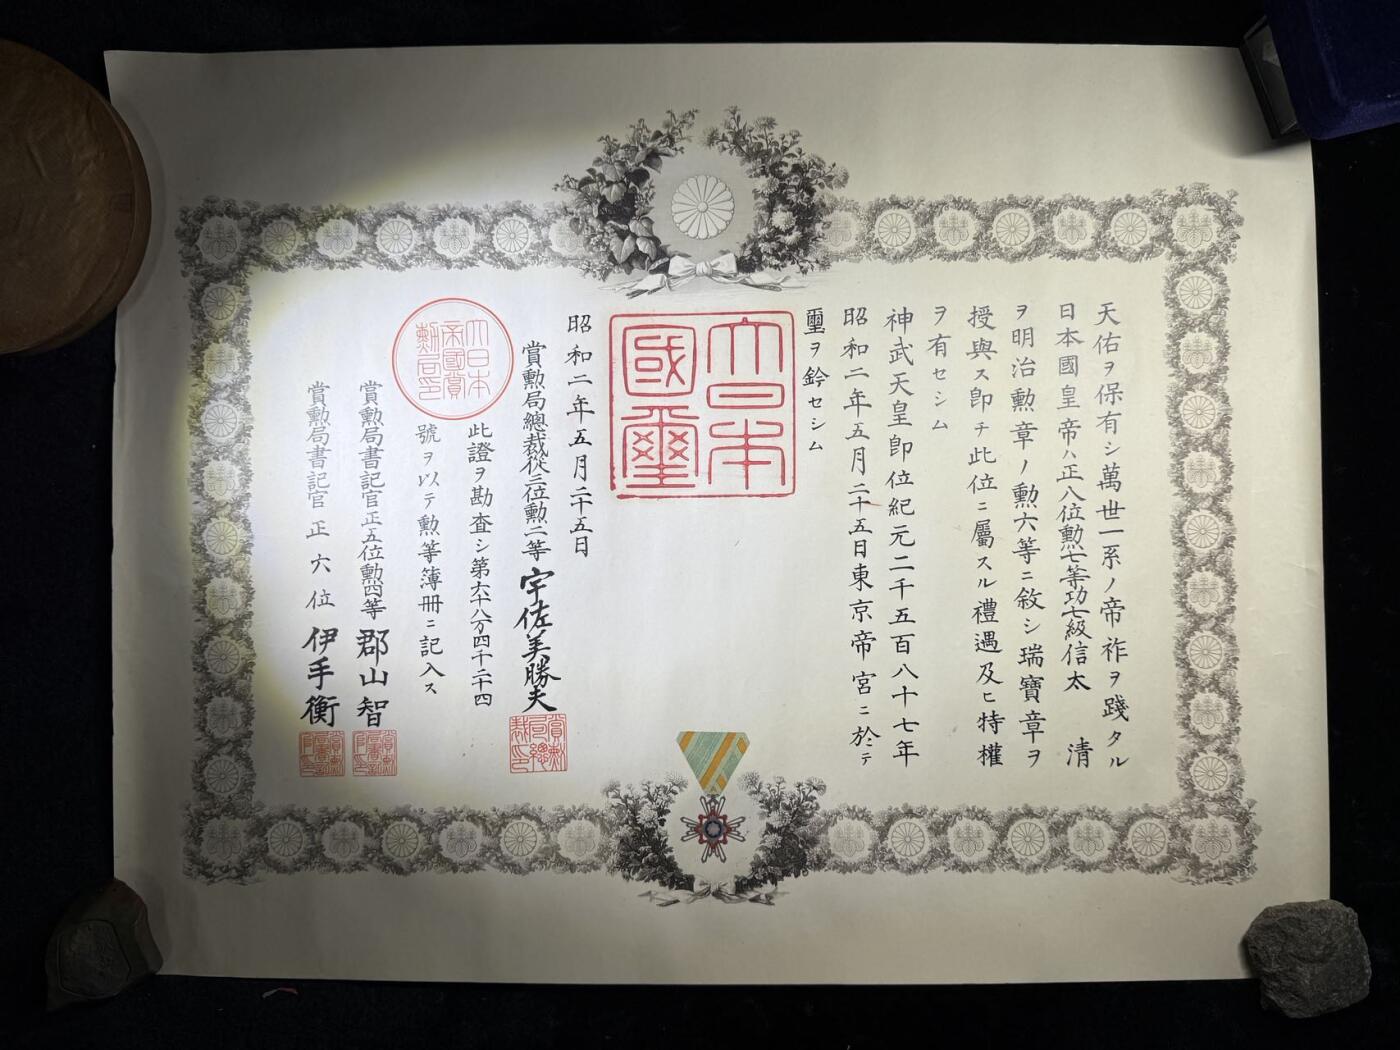 天佑ヲ保有シ萬世一系ノ帝祚ヲ踐タル
日本國皇帝ハ正八位勲七等功七級信太清
ヲ明治勲章ノ勲六等ニ敘シ瑞寶章ヲ
授與ス即チ此位ニ屬スル禮遇及ヒ特權
ヲ有セシム
神武天皇即位紀元二千五百八十七年
昭和二年五月二十五日東京帝宮ニ於テ
璽ヲ鈐セシム
大日本國璽
昭和二年五月二十五日
賞勲局總裁從三位勲二等宇佐美勝夫
賞勲局總裁印
此證ヲ勘査シ第六十八万四千二十四
號ヲ以テ勲等簿册ニ記入ス
大日本帝國賞勲局印
賞勲局書記官正五位勲四等郡山智
賞勲局書記官正六位伊手衡